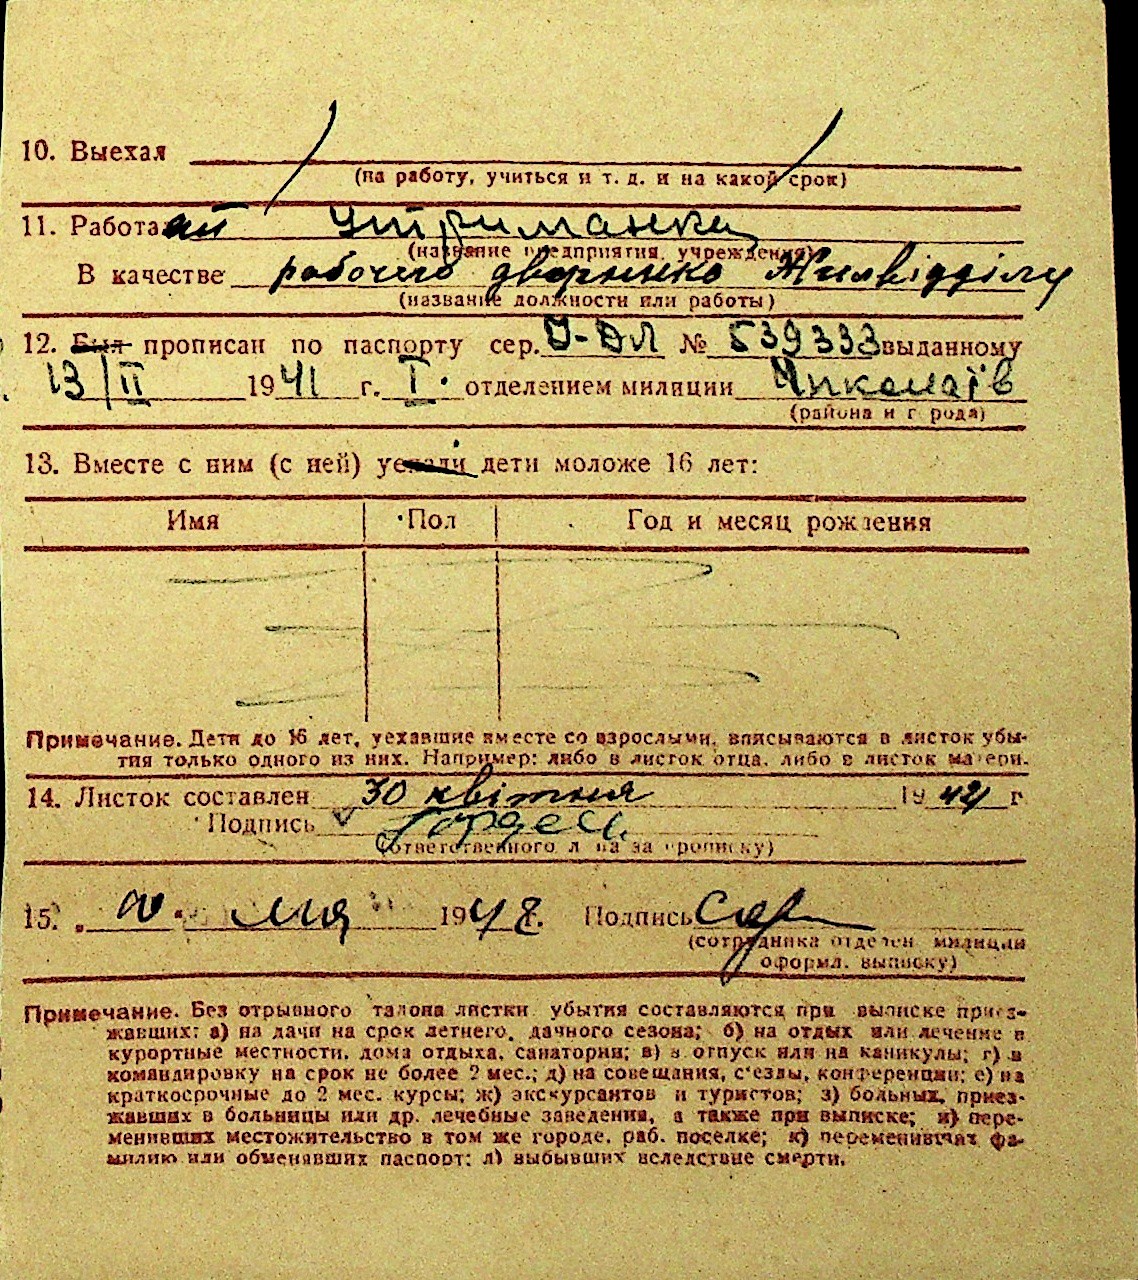 10. Выехал
(на работу, учиться и т. д. и на какой срок)
11. Работа утриманка
(название предприятия, учреждения)
В качестве рабочего дворника Жилвідділу
(название должности или работы)
12. Был прописан по паспорту сер. № 539333 выданному
13/II 1941 г. I. отделением милиции Миколаїв
(района и города)
13. Вместе с ним (с ней) уехали дети моложе 16 лет:
Имя Пол Год и месяц рождения
Примечание. Дети до 16 лет, уехавшие вместе со взрослыми, вписываются в листок убы-
тия только одного из них. Например: либо в листок отца, либо в листок матери.
14. Листок составлен 30 квітня 1942 г
Подпись
(ответственного лица за прописку)
15. мая 1942. Подпись
(сотрудника отделен. милиции
оформл. выписку)
Примечание. Без отрывного талона листки убытия составляются при выписке приез-
жавших: а) на дачи на срок летнего, дачного сезона; б) на отдых или лечение в
курортные местности, дома отдыха, санатории; в) в отпуск или на каникулы; г) в
командировку на срок не более 2 мес.; д) на совещания, с'езды, конференции; е) на
краткосрочные до 2 мес. курсы; ж) экскурсантов и туристов; з) больных, приез-
жавших в больницы или др. лечебные заведения, а также при выписке; и) пере-
менивших местожительство в том же городе, раб. поселке; к) переменивших фа-
милию или обменявших паспорт; л) выбывших вследствие смерти.